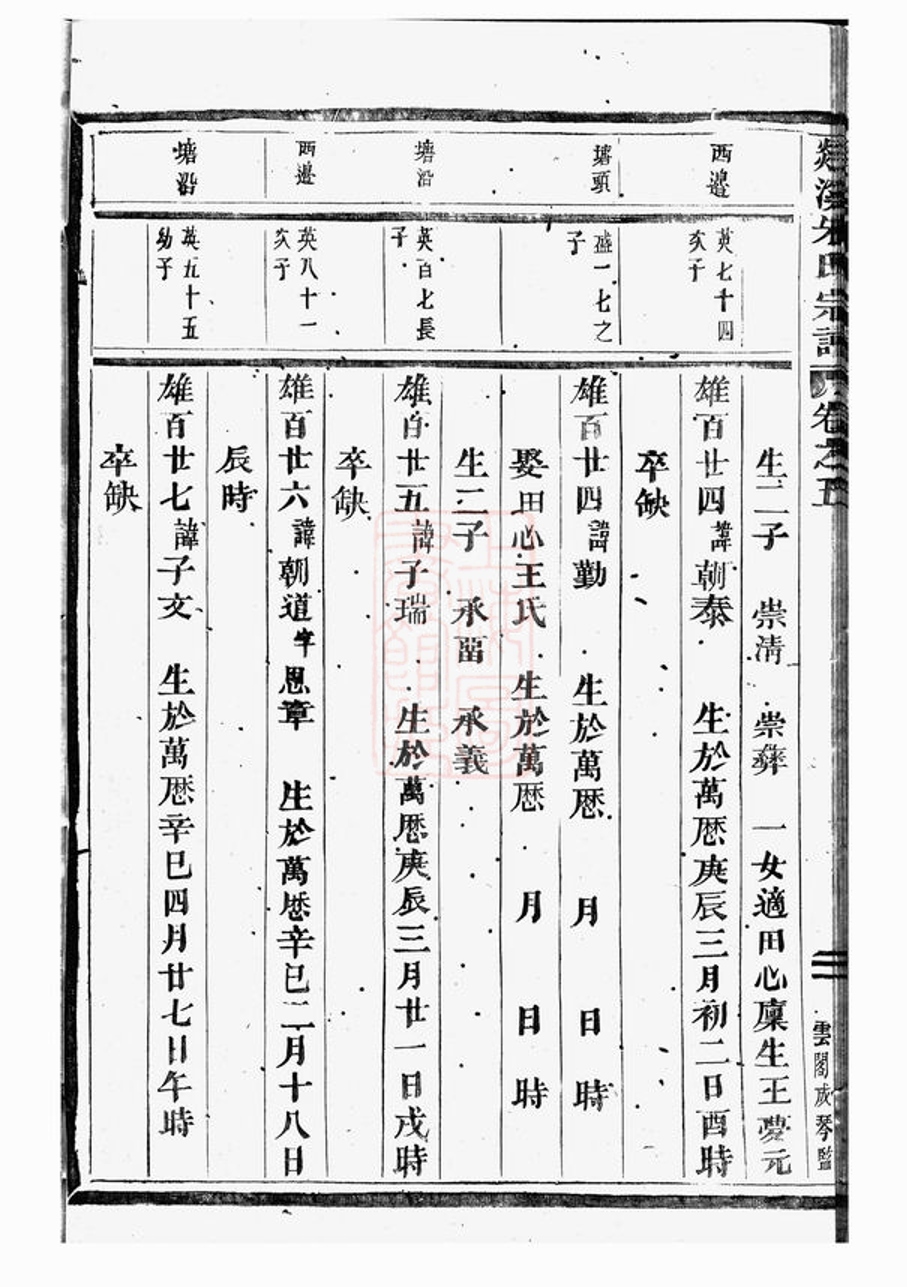 溪朱氏宗譜 卷之五
雲閣成琴監
生二子 崇清 崇彝 一女適田心廩生王夢元
西邊
英七十四
次子
雄百廿四諱朝泰 生於萬曆庚辰三月初二日酉時
卒缺
塘頭
盛一七之
子
雄百廿四諱勤 生於萬曆 月 日 時
娶田心王氏 生於萬曆 月 日 時
生二子 承㽞 承義
塘沿
英百七長
子
雄百廿五諱子瑞 生於萬曆庚辰三月廿一日戌時
卒缺
西邊
英八十一
次子
雄百廿六諱朝道字思章 生於萬曆辛巳二月十八日
辰時
塘沿
英五十五
幼子
雄百廿七諱子文 生於萬曆辛巳四月廿七日午時
卒缺